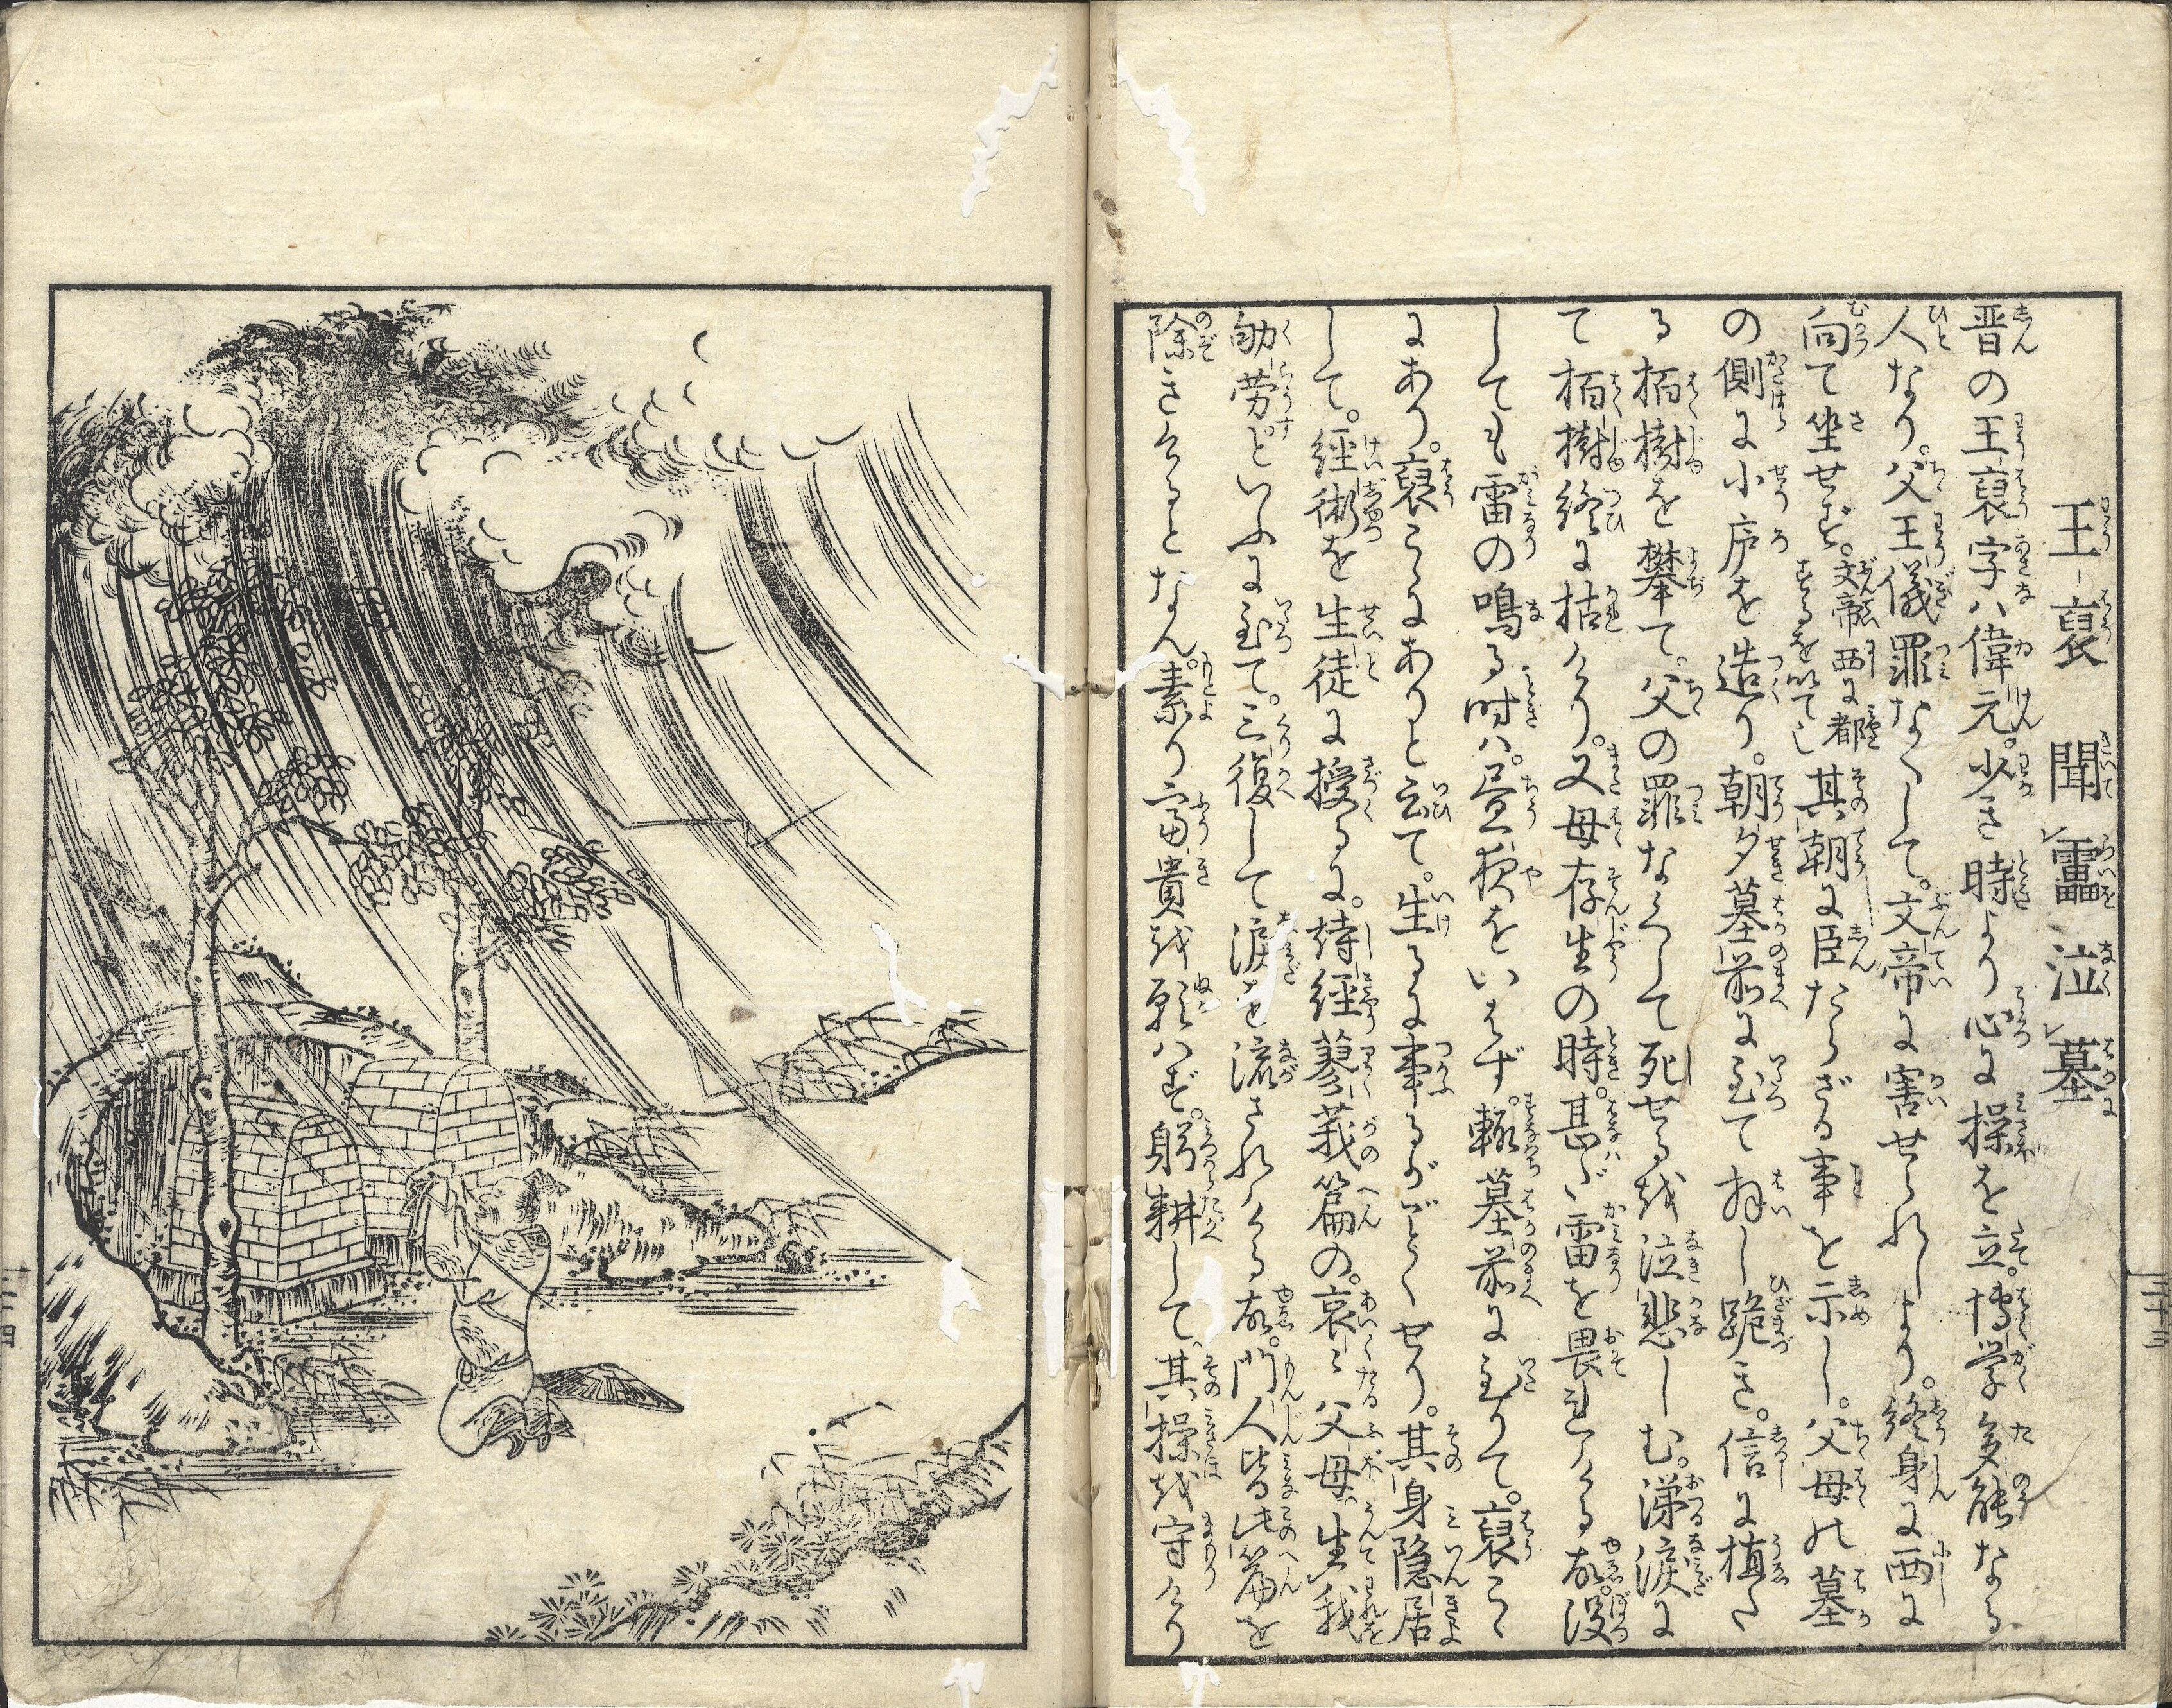 王裒　聞㆑靁泣㆑墓
晋の王裒字ハ偉元。少き時より心に操を立。博学多能なる
人なり。父王儀罪なくして。文帝に害せられしより。終身に西に
向て坐せず。文帝西に都するを以てし其朝に臣たらざる事を示し。父母の墓
の側に小庐を造り。朝夕墓前に至て拜し跪き。信に植た
る栢樹を攀て。父の罪なくして死せる越泣悲しむ。涕涙に
て栢樹終に枯けり。又母存生の時。甚ゞ雷を畏れける故。没
しても雷の鳴る时ハ。昼夜をいはず。輙墓前に至りて。裒こゝ
にあり。裒こゝにありと云て。生るに事るがごとくせり。其身隐居
して。經術を生徒に授るに。詩經蓼莪篇の。哀〻父母。生我
劬劳。といふに至て。三復して涙を流されける故。门人皆此篇を
除きけるとなん。素り富貴越願ハず。躬耕して。其操越守けり
三十三
三十四